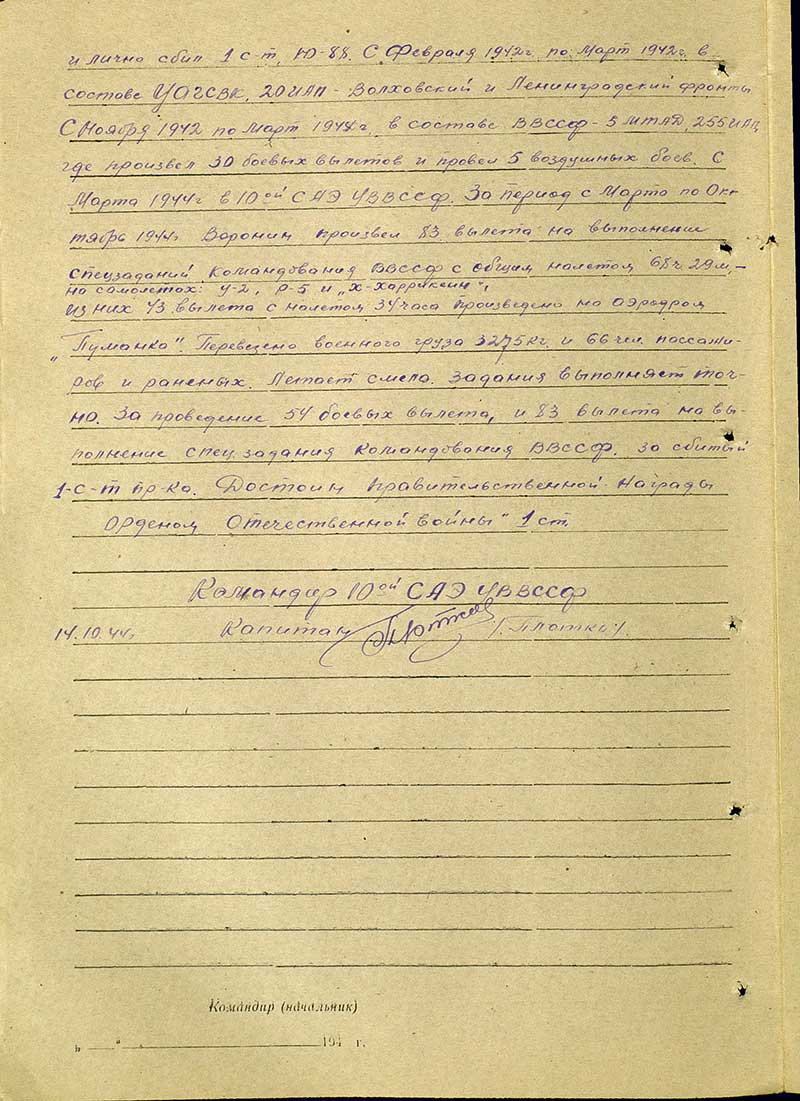 и лично сбил 1 с-т, Ю-88. С Февраля 1942г. по Март 1942г. в
составе УАГСВК, 20 ИАП - Волховский и Ленинградский фронты
С Ноября 1942 по Март 1944г, в составе ВВССФ - 5 МТАД, 255 ИАП,
где произвел 30 боевых вылетов и провел 5 воздушных боев. С
Марта 1944г в 10ой САЭ УВВССФ. За период с Марта по Ок-
тябрь 1944г Воронин произвел 83 вылета на выполнение
спецзаданий Командования ВВССФ с общим налетом 68 ч. 29 м, -
на самолетах: У-2, Р-5 и „Х-Харрикеин",
из них 43 вылета с налетом 34 часа произведено на аэродром
„Пуманки". Перевезено военного груза 3275 кг. и 66 чел. пассажи-
ров и раненых. Летает смело. Задания выполняет точ-
но. За проведение 54 боевых вылета, и 83 вылета на вы-
полнение спец.задания Командования ВВССФ. за сбитый
1-с-т пр-ка. Достоин правительственной Награды
Орденом Отечественной войны" 1 ст.
Командир 10ой САЭ УВВССФ
14.10.44г Капитан /.Плоткин/.
Командир (начальник)
„ " 194 г.